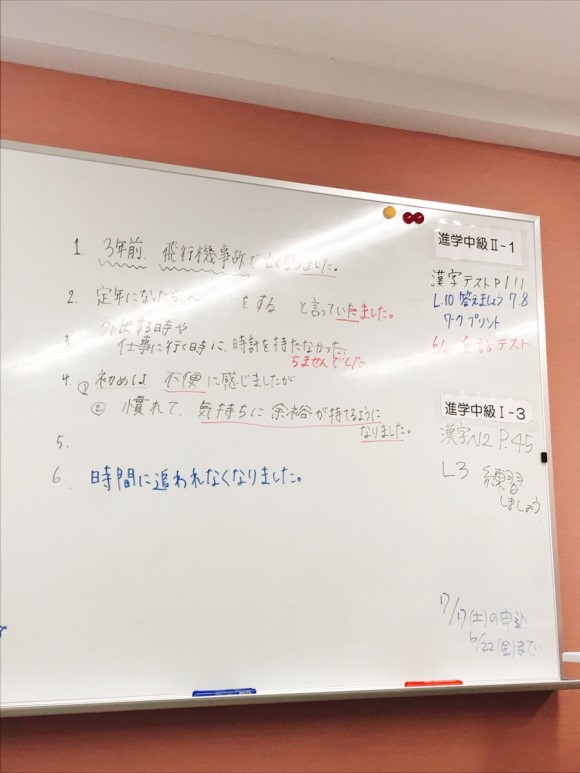 1. 3年前、飛行機事故で亡くなりました。
2. 定年になったら〜 をする と言っていたました。
3. 外出する時や
仕事に行く時に、時計を持たなかった。
ちませんでした
4. ① 初めは 不便に感じましたが
② 慣れて、気持ちに余裕が持てるように
なりました。
5.
6. 時間に追われなくなりました。
進学中級Ⅱ-1
漢字テスト P111
L.10 答えましょう 7.8
ワークプリント
会話テスト
進学中級Ⅰ-3
漢字N2 P.45
L3 練習
しましょう
(土)の申込
6/22(金)まで